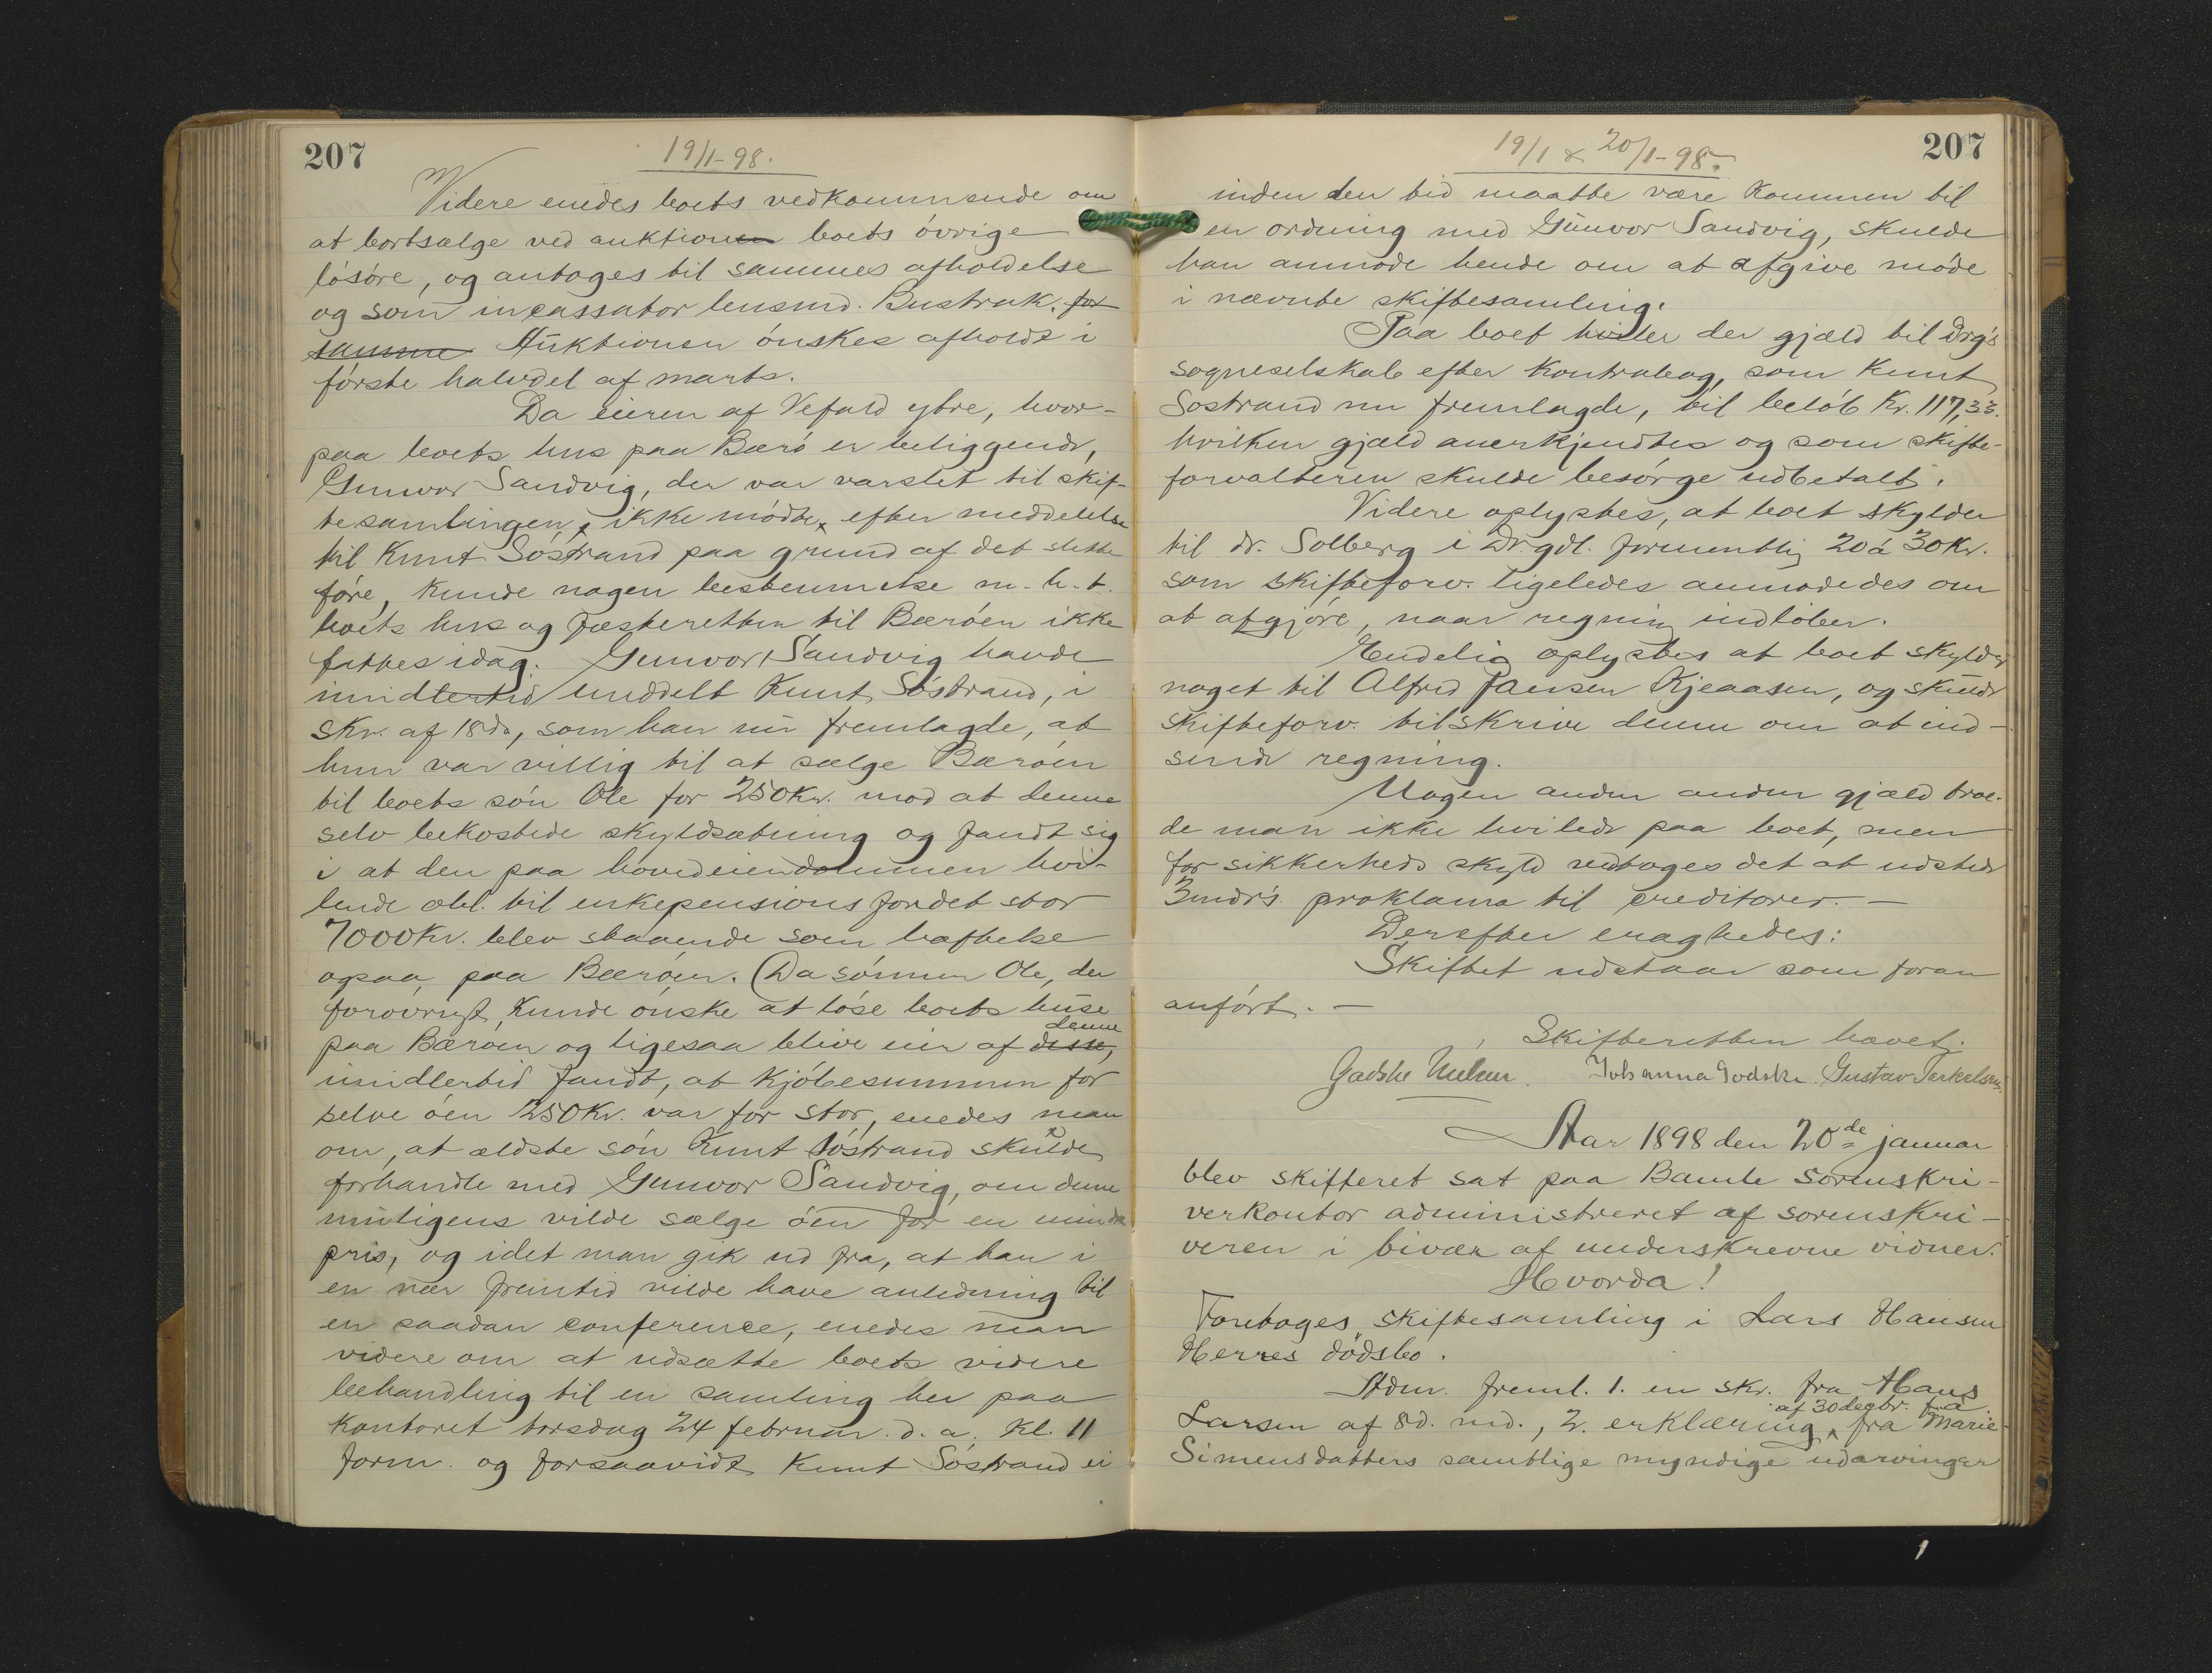 207
19/1-98.
Videre enedes boets vedkommende om
at bortsælge ved auktionen boets øvrige
løsøre, og antoges til sammes afholdelse
og som incassator lensmd. Bustrak. for
samme Auktionen ønskes afholdt i
første halvdel af marts.
Da eieren af Vefald ytre, hvor-
paa boets hus paa Bærø er beliggende,
Gunvor Sandvig, der var varslet til skif-
tesamlingen, ikke mødte, efter meddelelse
til Knut Søstrand paa grund af det slette
føre, kunde nogen bestemmelse m. h. t.
boets hus og fæsteretten til Bærøen ikke
fattes idag. Gunvor Sandvig havde
imidlertid meddelt Knut Søstrand, i
skr. af 18 ds, som han nu fremlagde, at
hun var villig til at sælge Bærøen
til boets søn Ole for 250 Kr. mod at denne
selv bekostede skyldsætning og fandt sig
i at den paa hovedeiendommen hvi-
lende obl. til enkepensionsfondet stor
7000 Kr. blev staaende som heftelse
ogsaa paa Bærøen. (Da sønnen Ole, der
forøvrigt kunde ønske at løse boets huse
paa Bærøen og ligesaa blive eier af disse, denne
imidlertid fandt, at kjøbesummen for
selve øen 250 Kr. var for stor, enedes man
om, at ældste søn Knut Søstrand skulde
forhandle med Gunvor Sandvig, om denne
muligens vilde sælge øen for en mindre
pris, og idet man gik ud fra, at han i
en nær fremtid vilde have anledning til
en saadan conference, enedes man
videre om at udsætte boets videre
behandling til en samling her paa
kontoret torsdag 24 februar d. a. kl. 11
form. og forsaavidt Knut Søstrand ei
207
19/1 & 20/1-98.
inden den tid maatte være kommen til
en ordning med Gunvor Sandvig, skulde
han anmode hende om at afgive møde
i nævnte skiftesamling.
Paa boet hviler der gjæld til Drg's
sogneselskab efter kontrabog, som Knut
Søstrand nu fremlagde, til beløb Kr. 117,33.
hvilken gjæld anerkjendtes og som skifte-
forvalteren skulde besørge udbetalt.
Videre oplystes, at boet skylder
til dr. Solberg i Drgdl. formentlig 20 á 30 Kr.
som skifteforv. ligeledes anmodedes om
at afgjøre, naar regning indløber.
Endelig oplystes at boet skylder
noget til Alfred Jansen Kjeaasen, og skulde
skifteforv. tilskrive denne om at ind-
sende regning.
Nogen anden anden gjæld tro-
de man ikke hvilede paa boet, men
for sikkerheds skyld vedtoges det at udstede
3mdr's proklama til creditorer. —
Derefter eragtedes:
Skiftet udstaar som foran
anført. —
Skifteretten hævet.
Godske Nielsen. Johanna Godske. Gustav Terkelsen.
Aar 1898 den 20de januar
blev skifteret sat paa Bamle sorenskri-
verkontor administreret af sorenskri-
veren i bivær af underskrevne vidner.
Hvorda!
Foretoges skiftesamling i Lars Hansen
Herres dødsbo.
Adm. freml. 1. en skr. fra Hans
Larsen af 8 d. md., 2. erklæring af 30 decbr. f. a. fra Marie
Simensdatters samtlige myndige udarvinger